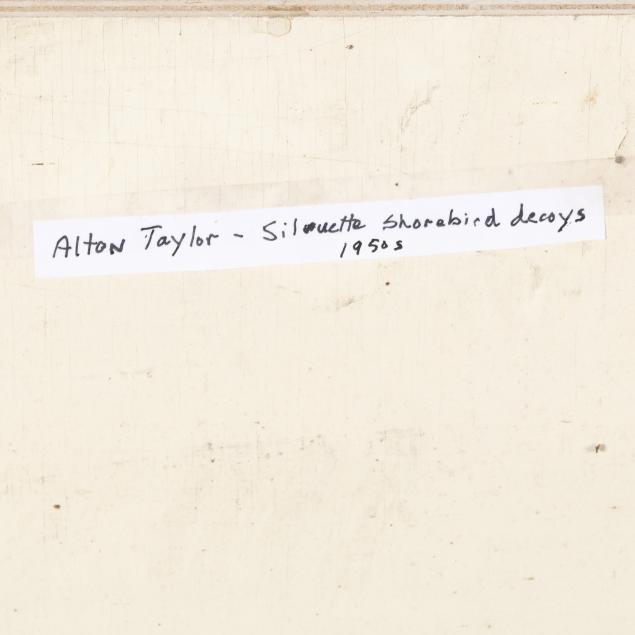 Alton Taylor - Silouette shorebird decoys
1950s